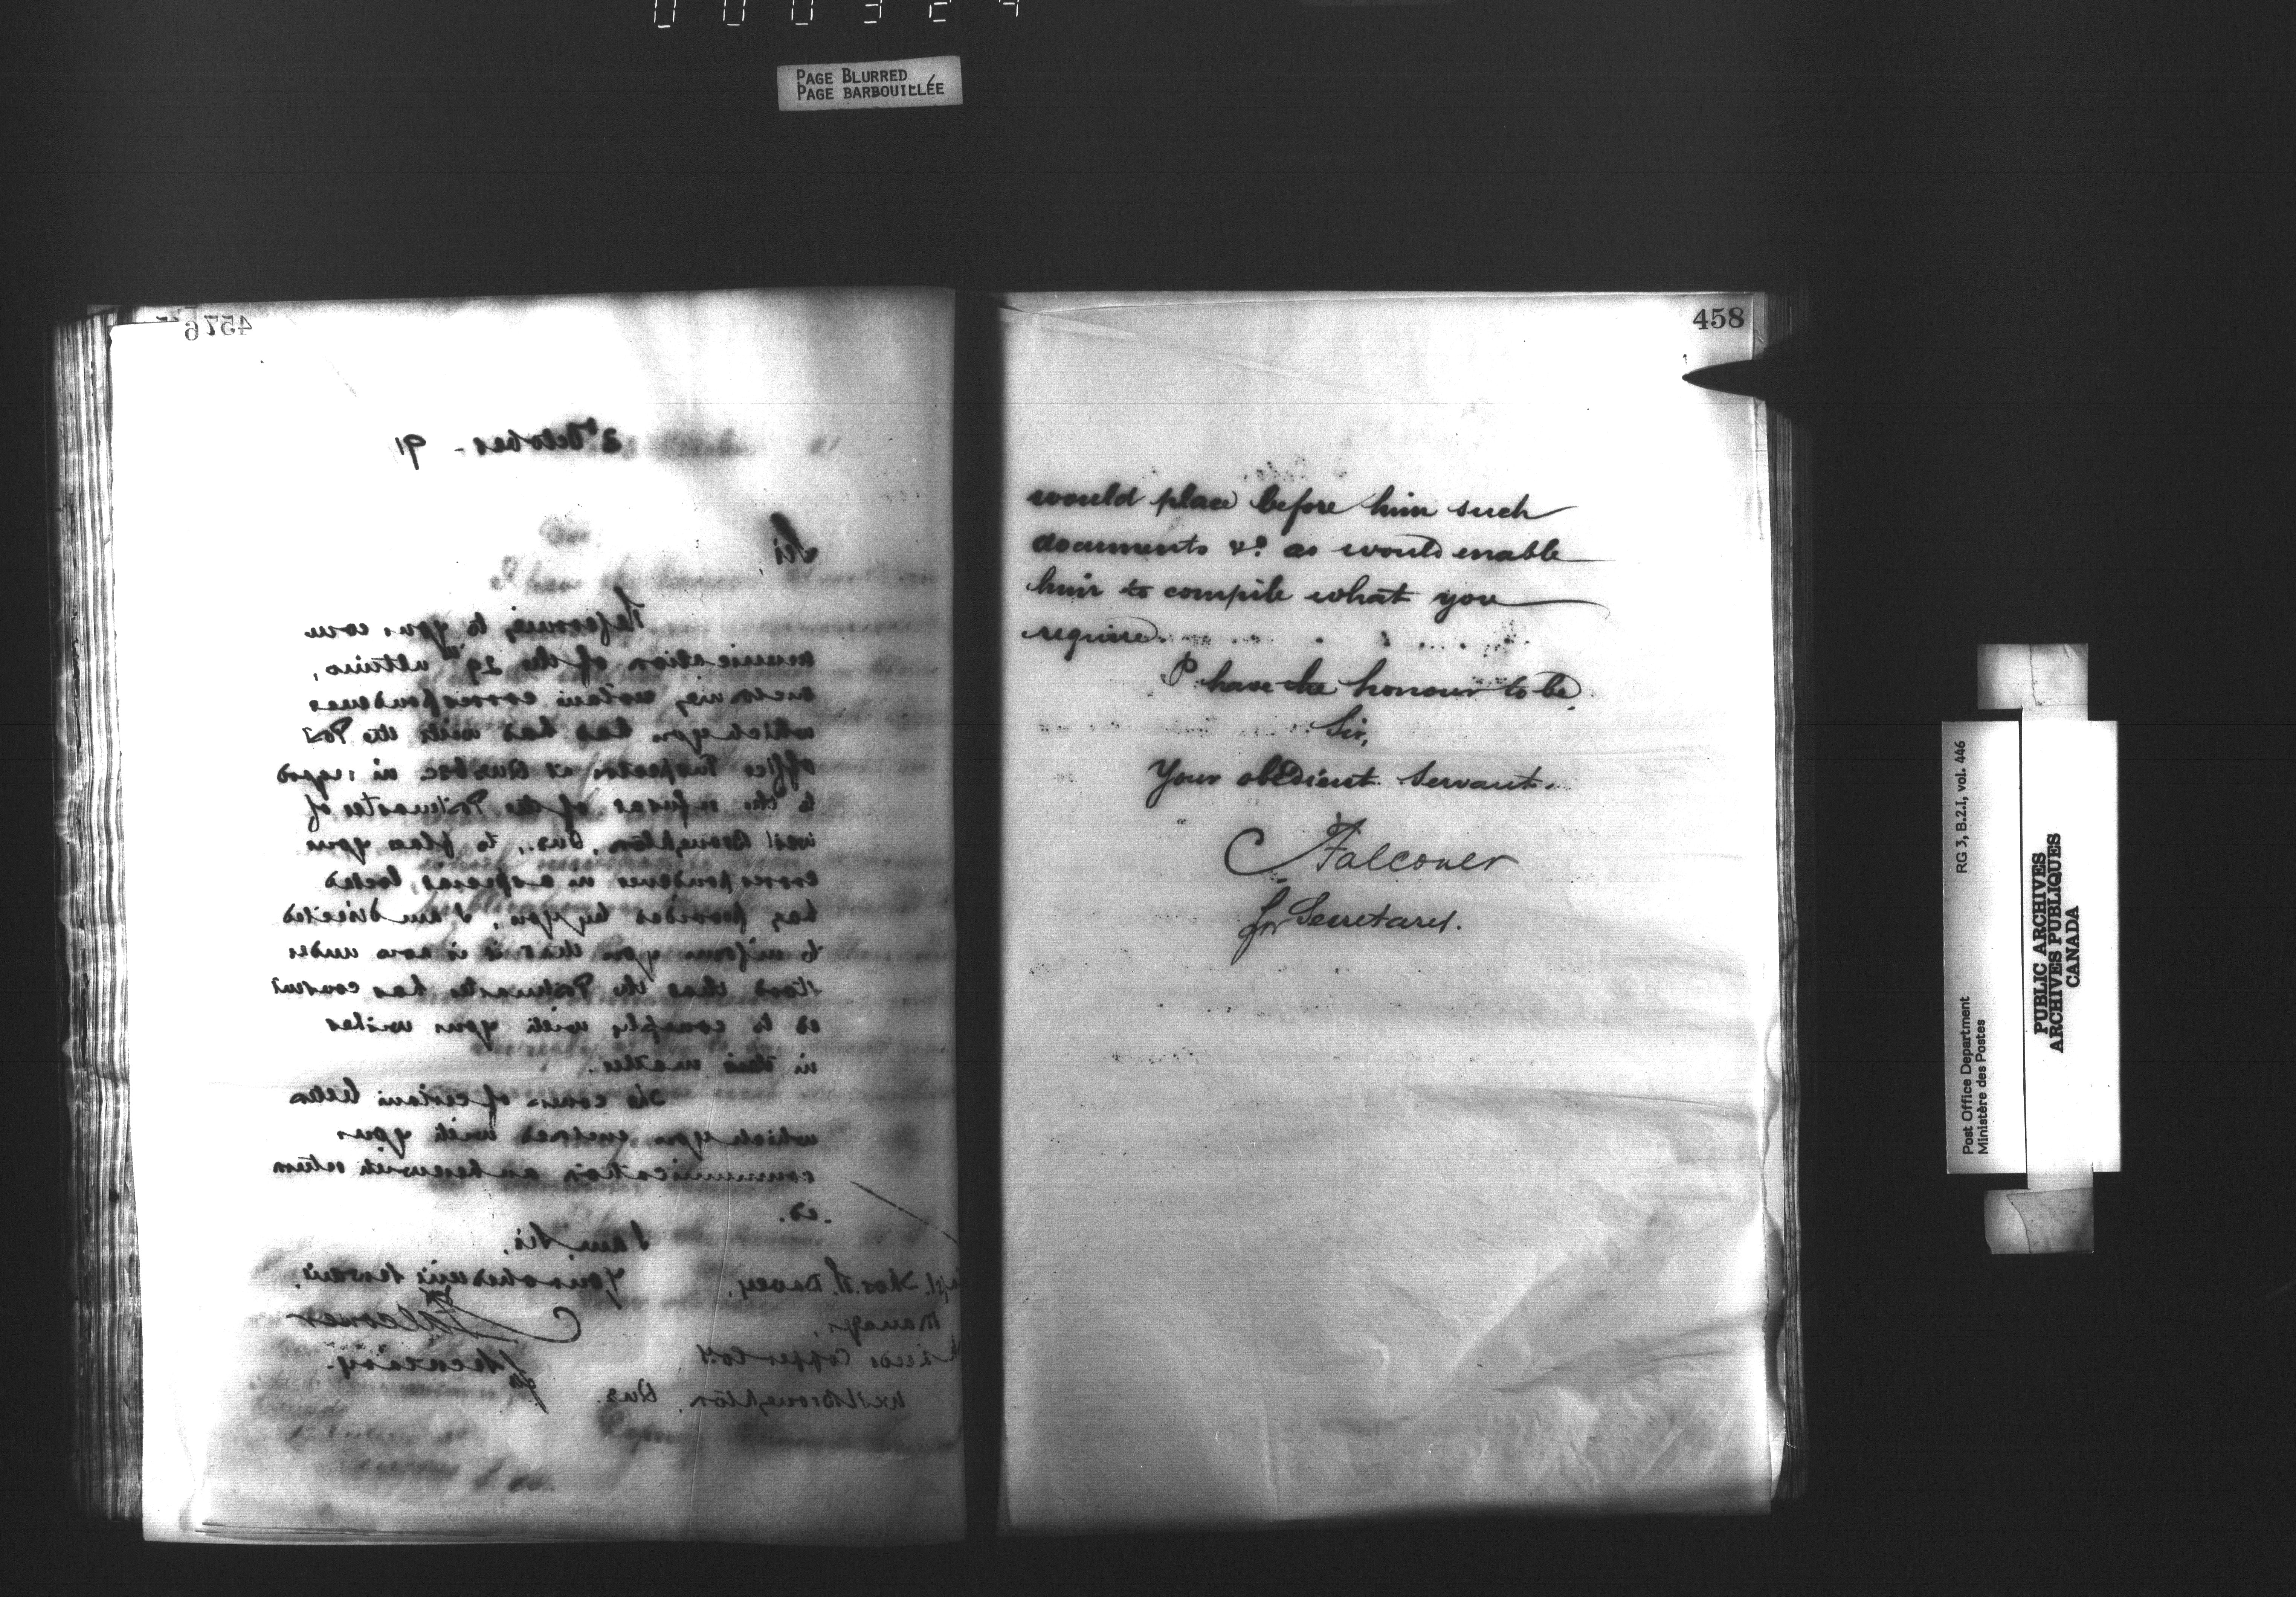 PAGE BLURRED
PAGE BARBOUILLÉE
457
2d October - 91
Sir,
Referring to your com
munication of the 29th ultimo,
certain correspondence
which you had with the Post
Office Inspector at Quebec in regard
to the refusal of the Postmaster of
West Broughton, Que., to place your
correspondence in a special locked
bag provided by you, I am directed
to inform you that it is now under
stood that the Postmaster has consent
ed to comply with your wishes
in this matter.
The of certain letters
which you enclosed with your
communication are herewith return
ed.
I am, Sir,
Your obedient servant,
C Falconer
for Secretary.
Capt. Thos. H. Davey,
Manager,
Copper Co.
West Broughton, Que.
458
would place before him such
documents &c. as would enable
him to compile what you
require.
I have the honour to be,
Sir,
Your obedient Servant.
C Falconer
for Secretary.
Post Office Department
Ministère des Postes
RG 3, B.2.I, vol. 446
PUBLIC ARCHIVES
ARCHIVES PUBLIQUES
CANADA